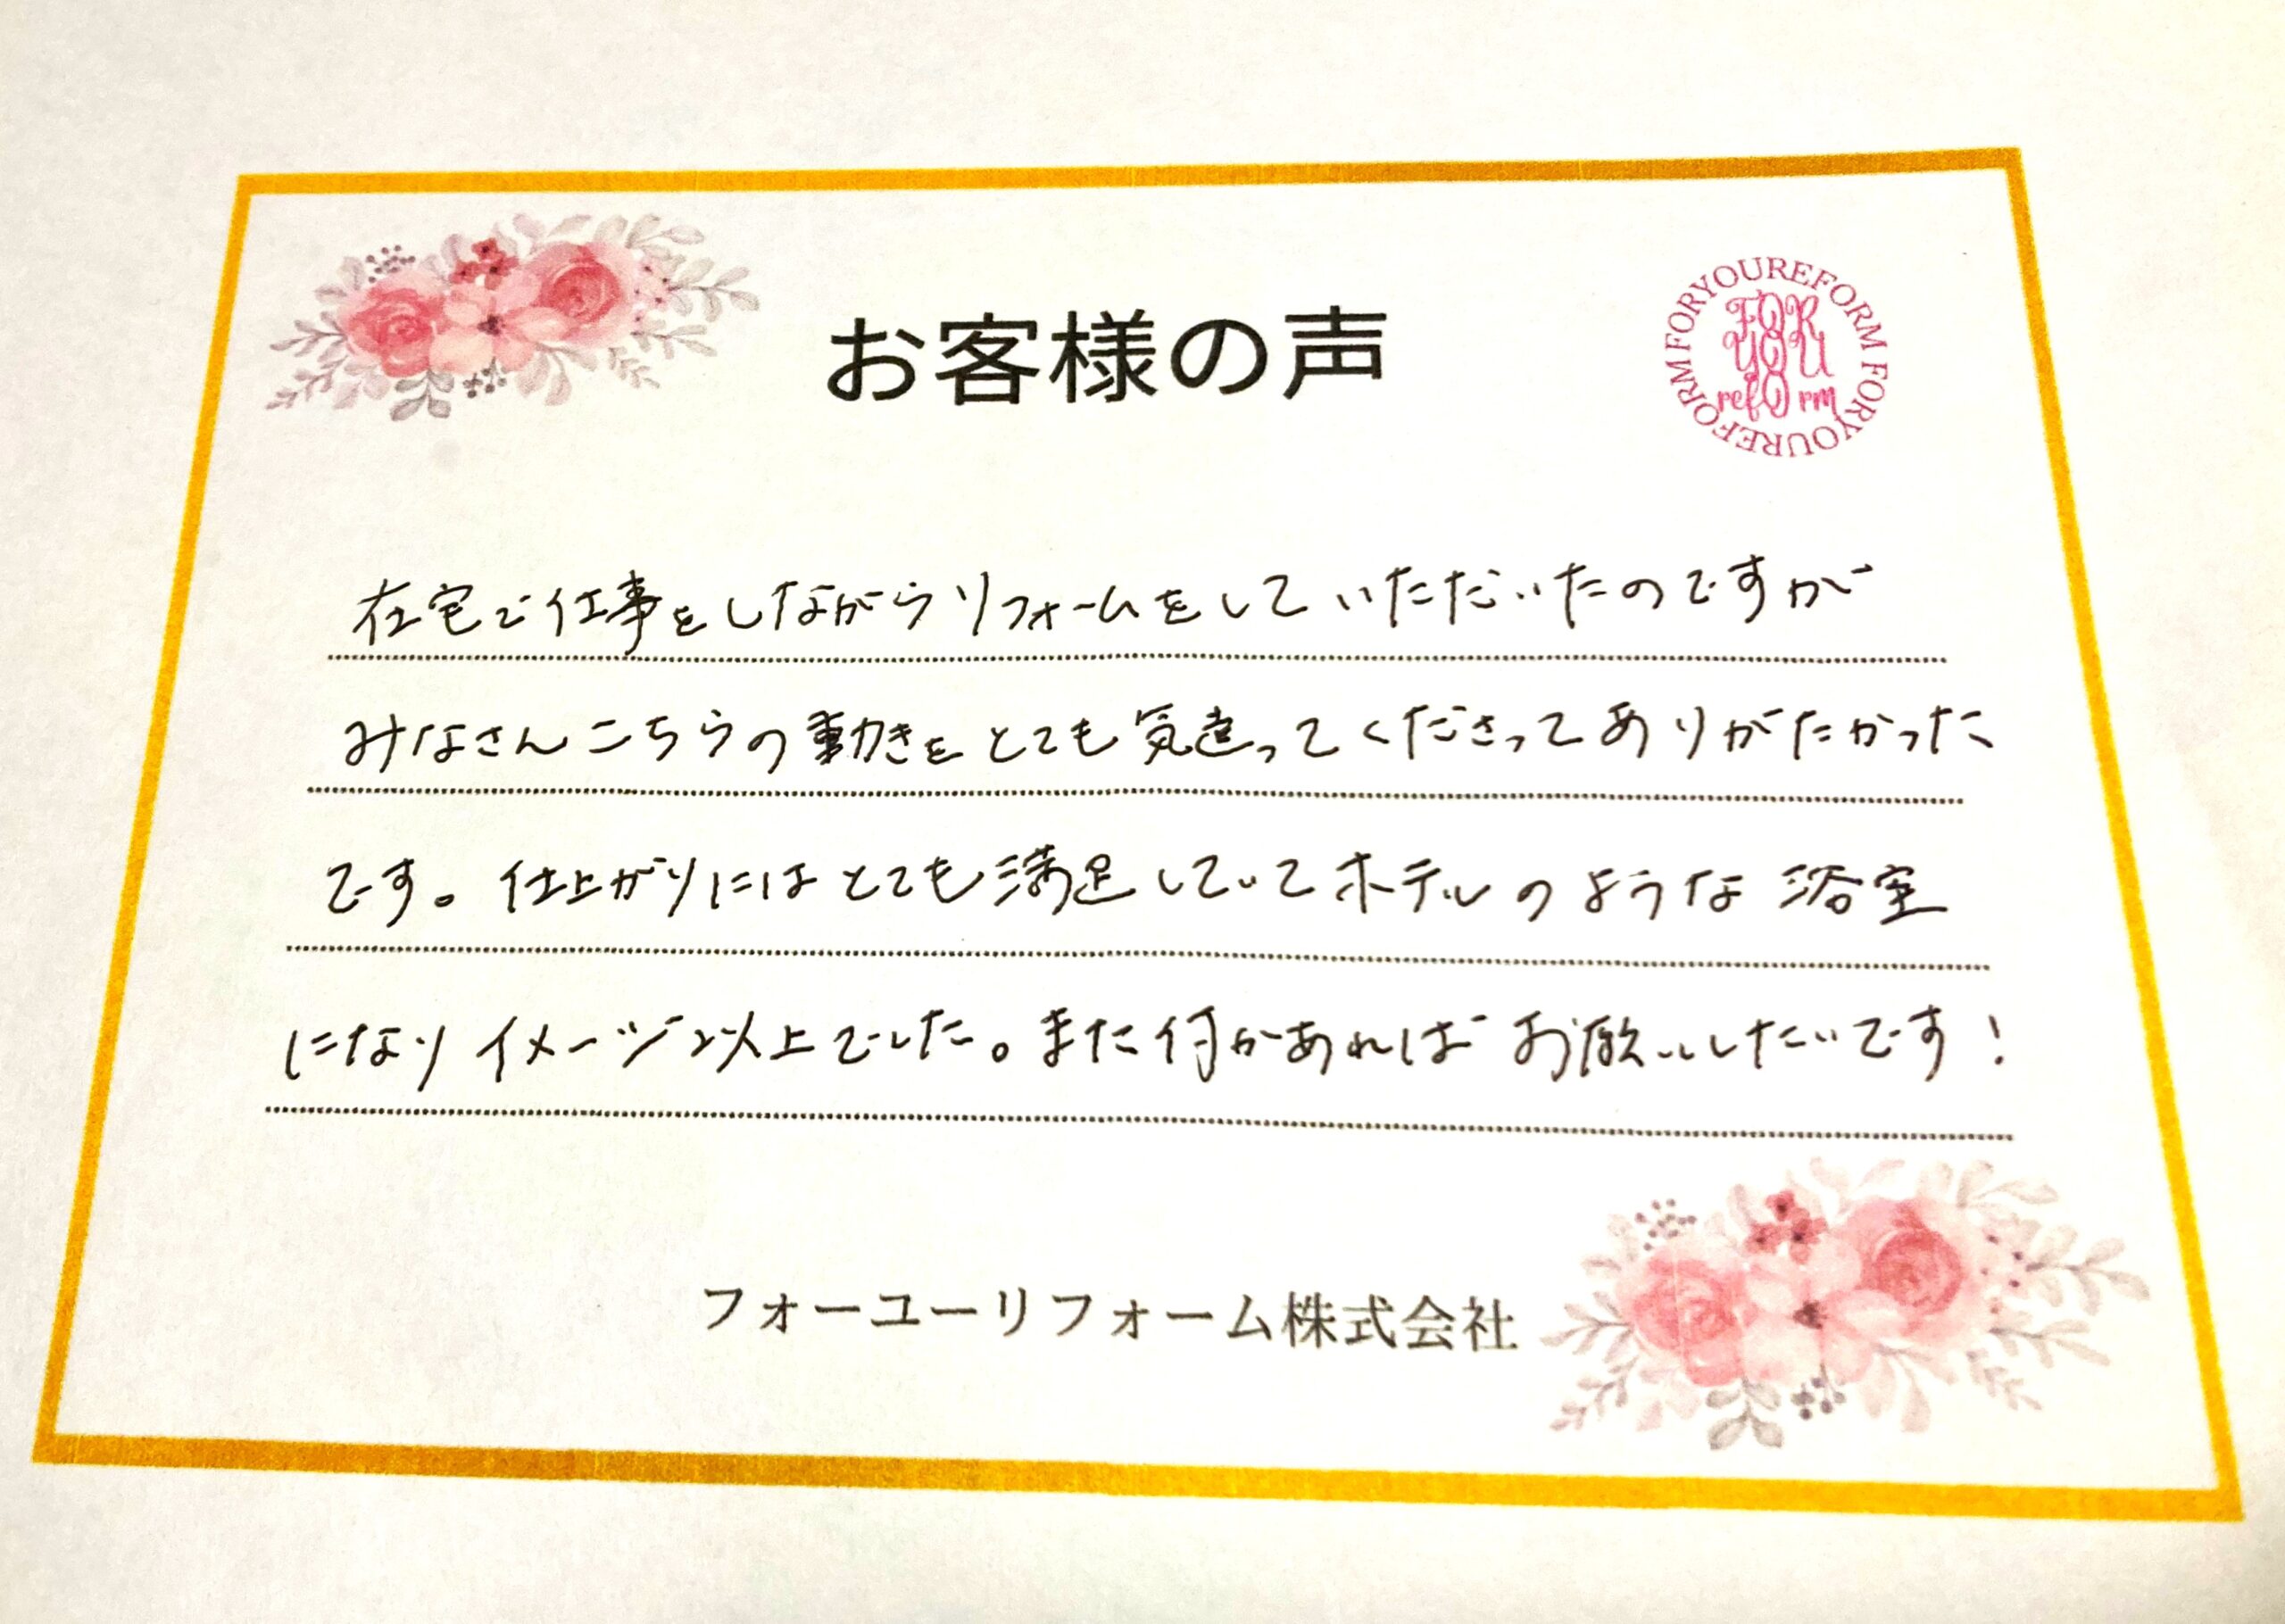 お客様の声
FORYOUREFORM FORYOUREFORM
FOR
YOU
refOrm
在宅で仕事をしながらリフォームをしていただいたのですが
みなさんこちらの動きをとても気遣ってくださってありがたかった
です。仕上がりにはとても満足していてホテルのような浴室
になりイメージ以上でした。また何かあればお願いしたいです!
フォーユーリフォーム株式会社